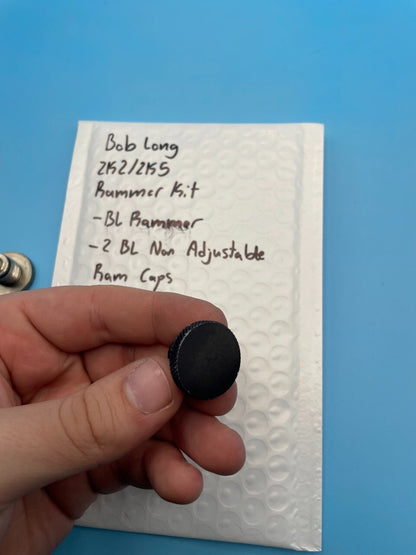 Bob Long
2K2/2K5
Rammer Kit
- BL Rammer
- 2 BL Non Adjustable
Ram Caps